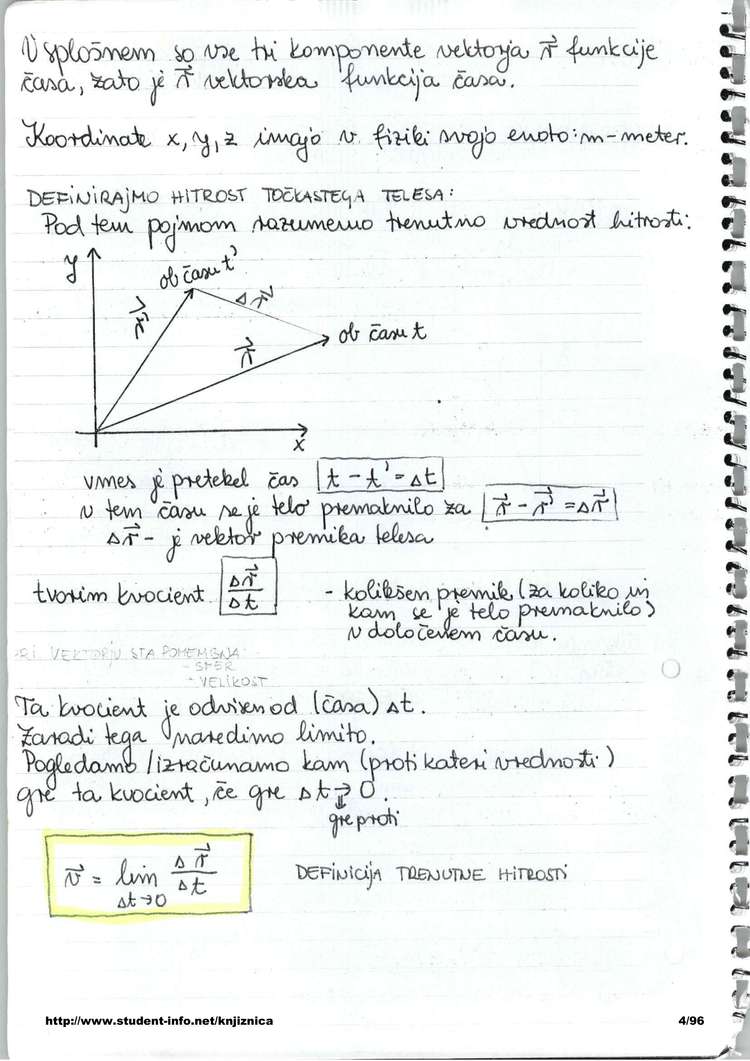 V splošnem so vse tri komponente vektorja r⃗ funkcije
časa, zato je r⃗ vektorska funkcija časa.
Koordinate x, y, z imajo v fiziki svojo enoto: m-meter.
DEFINIRAJMO HITROST TOČKASTEGA TELESA:
Pod tem pojmom razumemo trenutno vrednost hitrosti:
y
ob času t'
Δr⃗
r⃗'
r⃗
ob času t
x
vmes je pretekel čas t - t' = Δt
v tem času se je telo premaknilo za r⃗ - r⃗' = Δr⃗
Δr⃗ - je vektor premika telesa
tvorim kvocient Δr⃗/Δt - kolikšen premik (za koliko in
kam se je telo premaknilo)
v določenem času.
PRI VEKTORJU STA POMEMBNA:
- SMER
- VELIKOST
Ta kvocient je odvisen od (časa) Δt.
Zaradi tega naredimo limito.
Pogledamo/izračunamo kam (proti kateri vrednosti)
gre ta kvocient, če gre Δt → 0.
gre proti
v⃗ = lim Δt→0 Δr⃗/Δt DEFINICIJA TRENUTNE HITROSTI
http://www.student-info.net/knjiznica 4/96